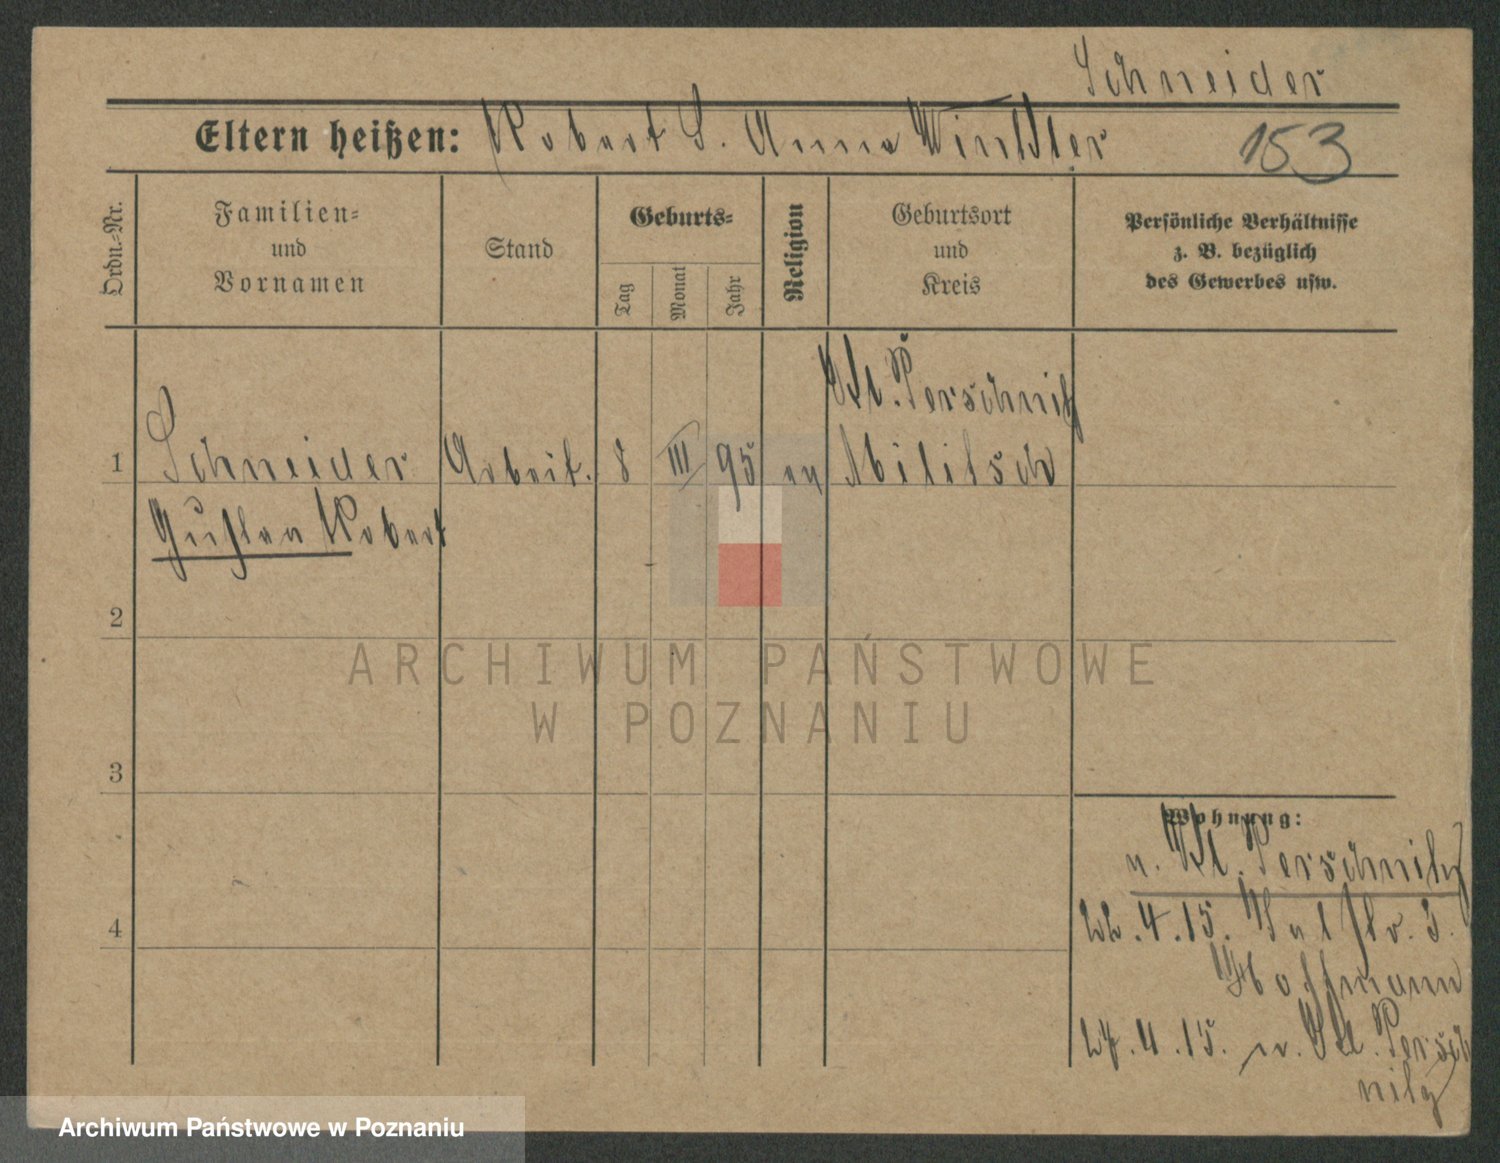 Schneider
Eltern heißen: Robert S. Anna Winkler 153
Ordn.-Nr.
Familien-
und
Vornamen
Stand
Geburts-
Tag
Monat
Jahr
Religion
Geburtsort
und
Kreis
Persönliche Verhältnisse
z. B. bezüglich
des Gewerbes usw.
Kl. Perschnitz
1 Schneider Arbeit. 8 III 95 ev Militsch
Gustav Robert
2
ARCHIWUM PAŃSTWOWE
W POZNANIU
3
Wohnung:
n. Kl. Perschnitz
4
.4.15. 3.
Hoffmann
.4.15. n. Kl. Persch
nitz
Archiwum Państwowe w Poznaniu